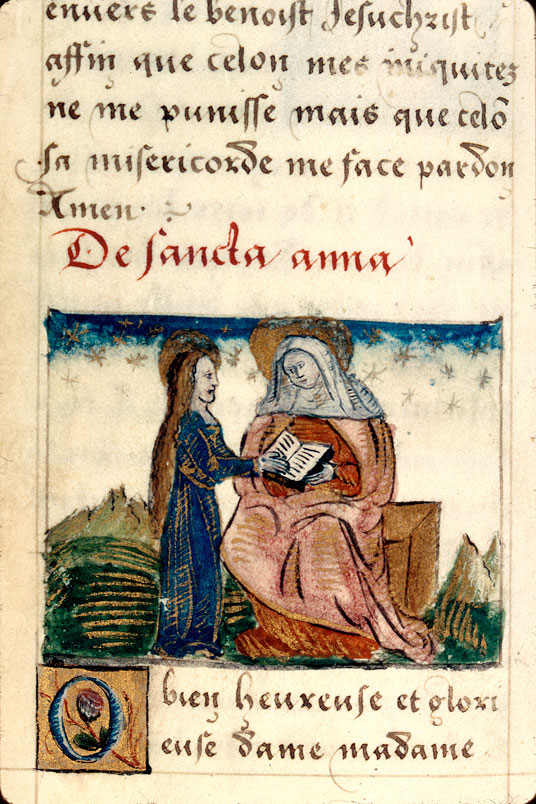 envers le benoist Jesuchrist
affin que celon mes iniquitez
ne me punisse mais que celõ
sa misericorde me face pardon
Amen.
De sancta anna
O bien heureuse et glori
euse dame madame